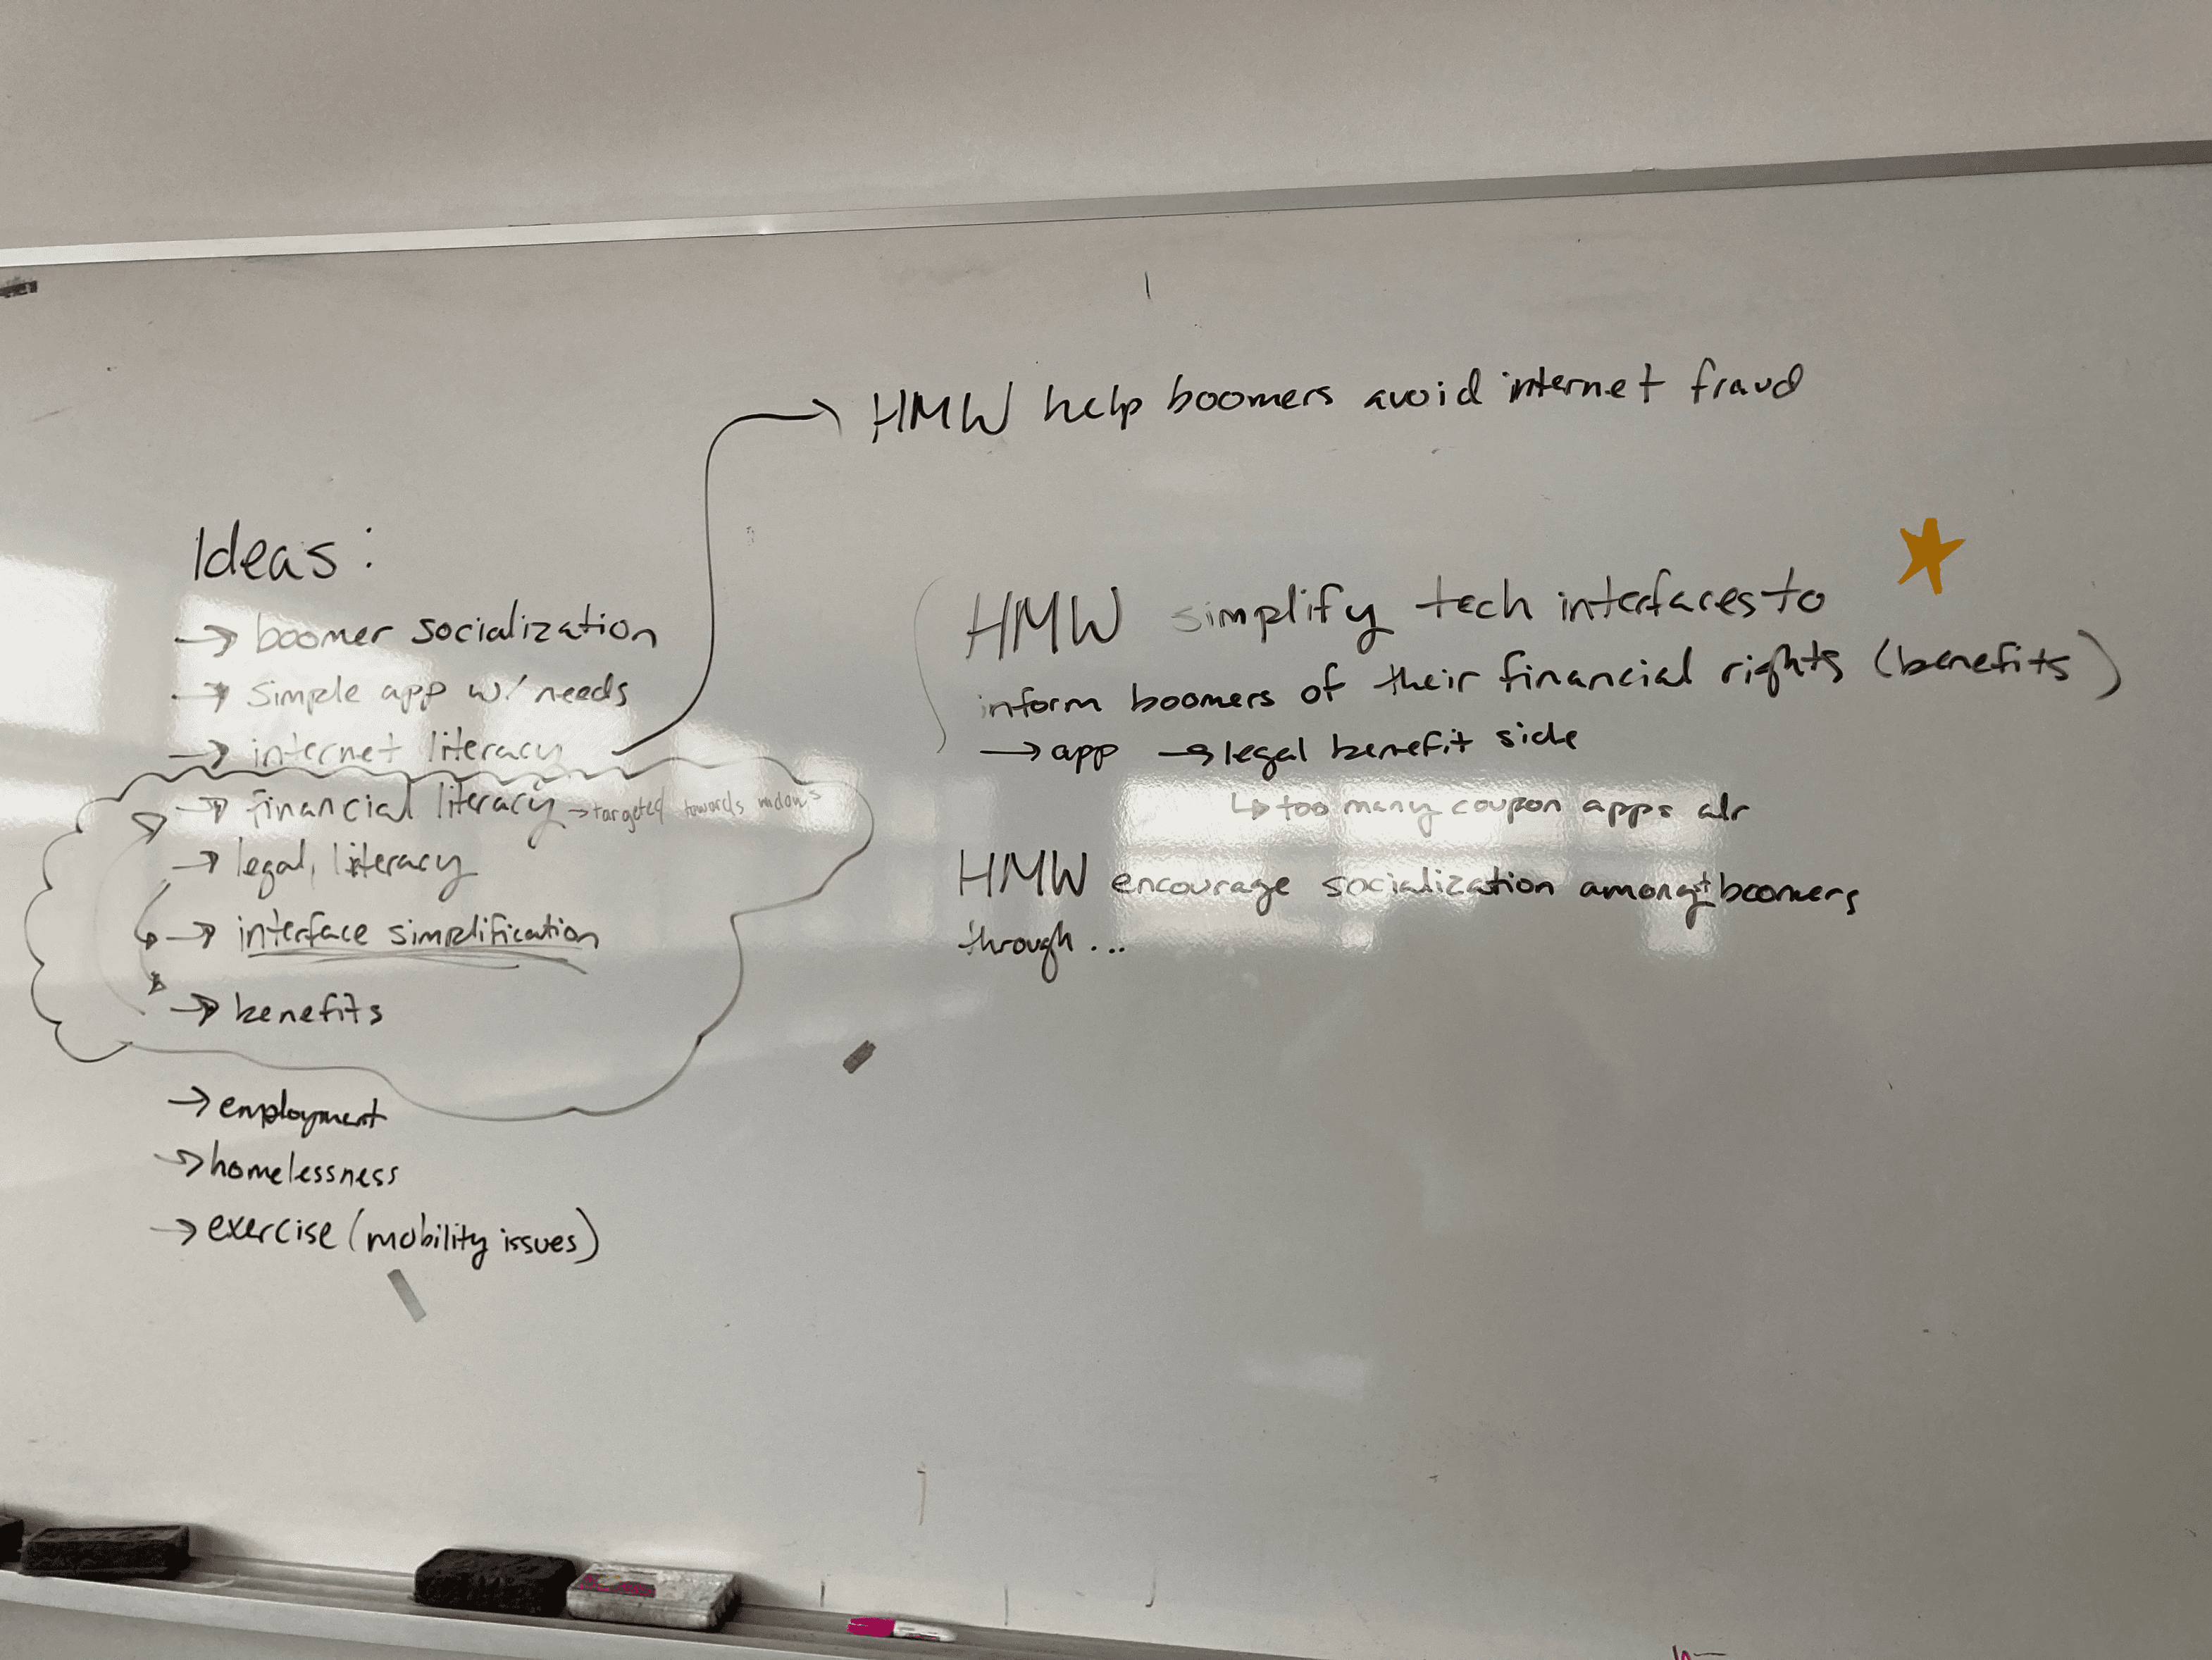 HMW help boomers avoid internet fraud
Ideas:
→ boomer socialization
→ simple app w/ needs
→ internet literacy
→ financial literacy → targeted towards widows
→ legal literacy
→ interface simplification
→ benefits
→ employment
→ homelessness
→ exercise (mobility issues)
HMW simplify tech interfaces to
inform boomers of their financial rights (benefits)
→ app → legal benefit side
↳ too many coupon apps alr
HMW encourage socialization amongst boomers
through...